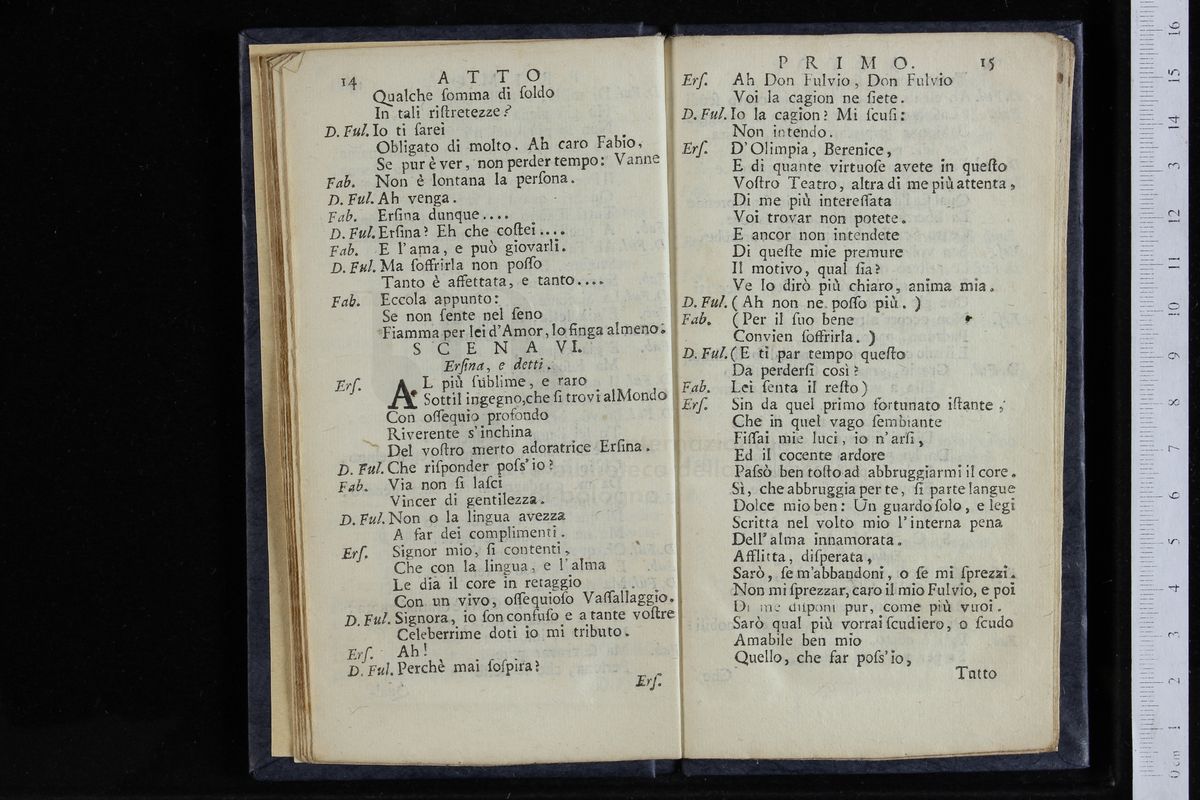 14 A T T O
Qualche ſomma di ſoldo
In tali riſtretezze?
D. Ful. Io ti ſarei
Obligato di molto. Ah caro Fabio,
Se pur è ver, non perder tempo: Vanne
Fab. Non è lontana la perſona.
D. Ful. Ah venga.
Fab. Erſina dunque....
D. Ful. Erſina? Eh che coſtei....
Fab. E l'ama, e può giovarli.
D. Ful. Ma ſoffrirla non poſſo
Tanto è affettata, e tanto....
Fab. Eccola appunto:
Se non ſente nel ſeno
Fiamma per lei d'Amor, lo finga almeno.
S C E N A VI.
Erſina, e detti.
Erſ. AL più ſublime, e raro
Sottil ingegno, che ſi trovi al Mondo
Con oſſequio profondo
Riverente s'inchina
Del voſtro merto adoratrice Erſina.
D. Ful. Che riſponder poſs'io?
Fab. Via non ſi laſci
Vincer di gentilezza.
D. Ful. Non o la lingua avezza
A far dei complimenti.
Erſ. Signor mio, ſi contenti,
Che con la lingua, e l'alma
Le dia il core in retaggio
Con un vivo, oſſequioſo Vaſſallaggio.
D. Ful. Signora, io ſon confuſo e a tante voſtre
Celeberrime doti io mi tributo.
Erſ. Ah!
D. Ful. Perchè mai ſoſpira?
Erſ.
P R I M O. 15
Erſ. Ah Don Fulvio, Don Fulvio
Voi la cagion ne ſiete.
D. Ful. Io la cagion? Mi ſcuſi:
Non intendo.
Erſ. D'Olimpia, Berenice,
E di quante virtuoſe avete in queſto
Voſtro Teatro, altra di me più attenta,
Di me più intereſſata
Voi trovar non potete.
E ancor non intendete
Di queſte mie premure
Il motivo, qual ſia?
Ve lo dirò più chiaro, anima mia.
D. Ful. (Ah non ne poſſo più.)
Fab. (Per il ſuo bene
Convien ſoffrirla.)
D. Ful. (E ti par tempo queſto
Da perderſi così?
Fab. Lei ſenta il reſto)
Erſ. Sin da quel primo fortunato iſtante,
Che in quel vago ſembiante
Fiſſai mie luci, io n'arſi,
Ed il cocente ardore
Paſsò ben toſto ad abbruggiarmi il core.
Sì, che abbruggia per te, ſi parte langue
Dolce mio ben: Un guardo ſolo, e legi
Scritta nel volto mio l'interna pena
Dell'alma innamorata.
Afflitta, diſperata,
Sarò, ſe m'abbandoni, o ſe mi ſprezzi.
Non mi ſprezzar, caro il mio Fulvio, e poi
Di me diſponi pur, come più vuoi.
Sarò qual più vorrai ſcudiero, o ſcudo
Amabile ben mio
Quello, che far poſs'io,
Tutto